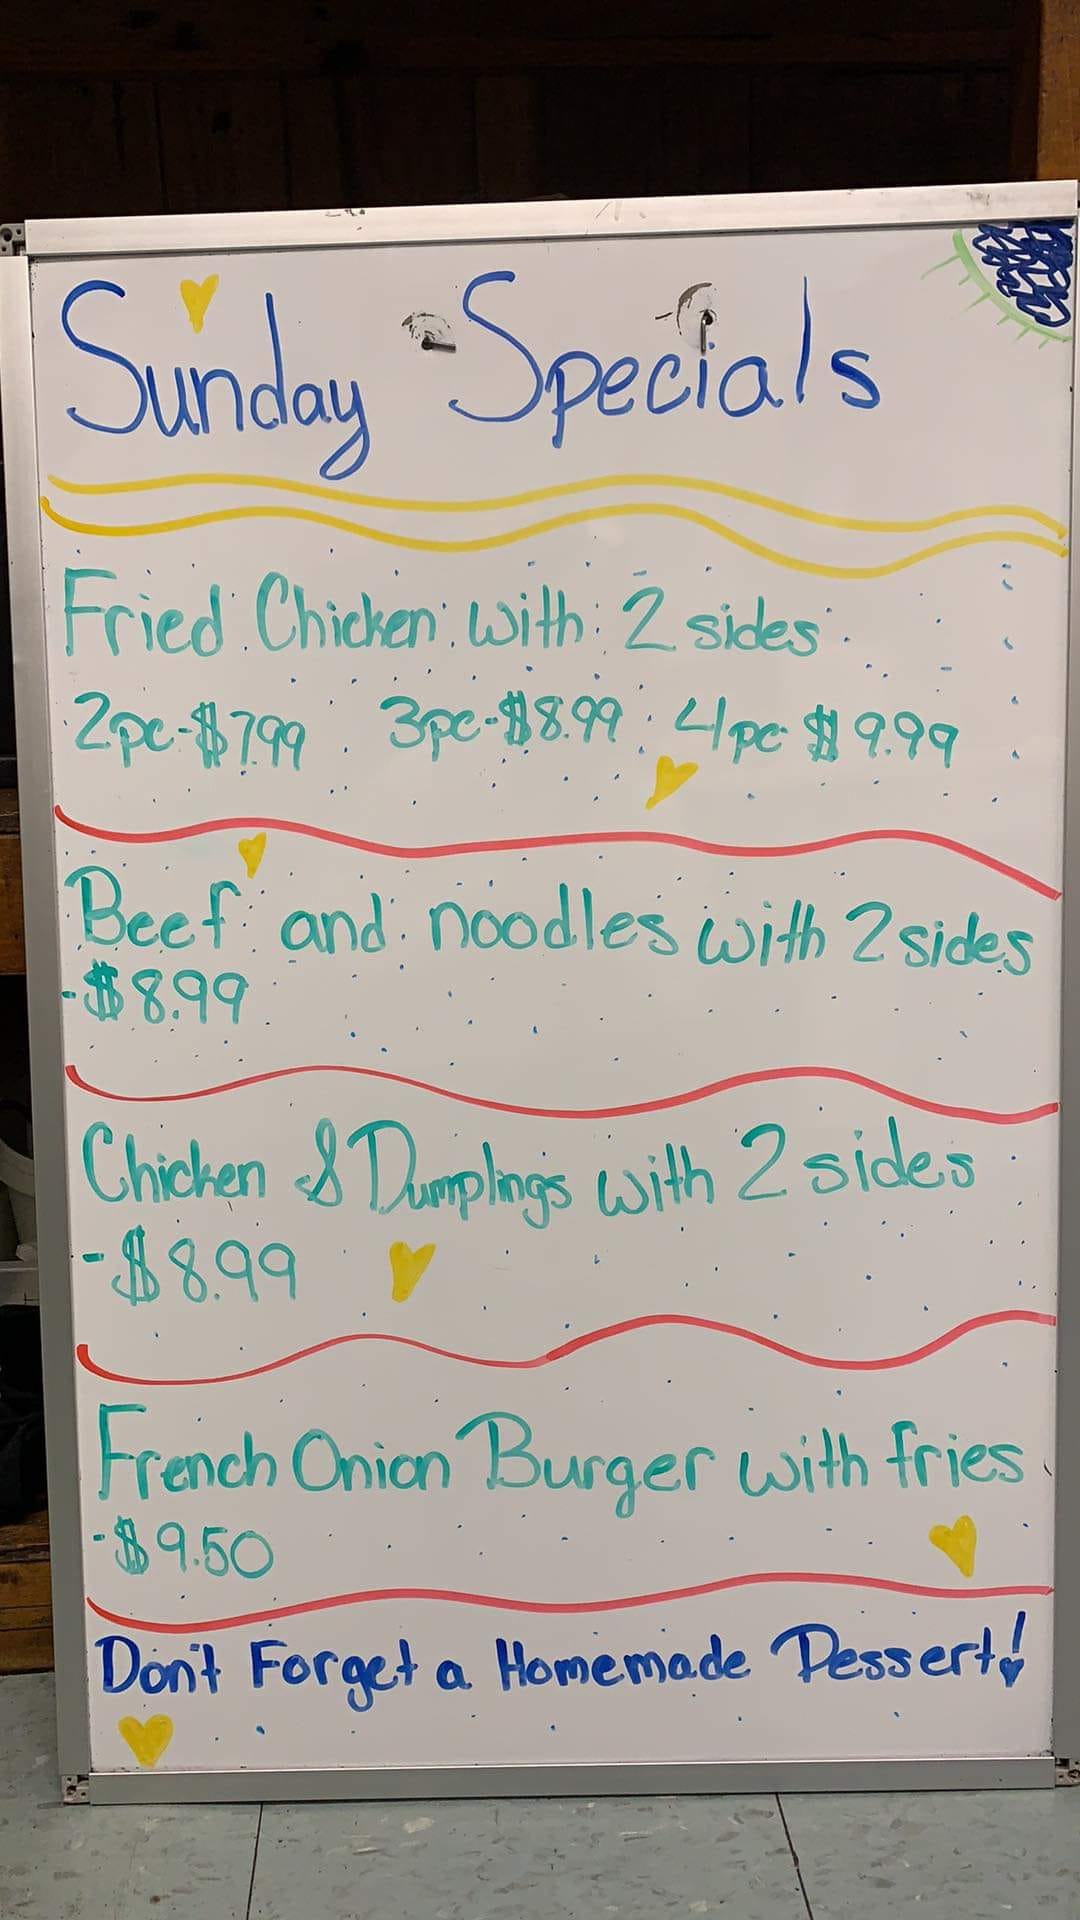 Sunday Specials
Fried Chicken with 2 sides
2pc-$7.99 3pc-$8.99 4pc $9.99
Beef and noodles with 2 sides
-$8.99
Chicken & Dumplings with 2 sides
-$8.99
French Onion Burger with fries
-$9.50
Don't Forget a Homemade Dessert!